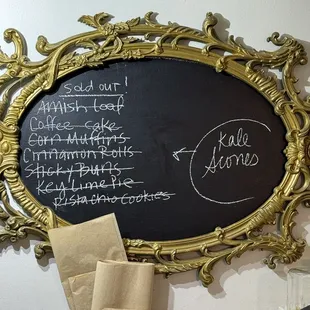 sold out!
Amish Loaf
Coffee cake
Corn Muffins
Cinnamon Rolls
Sticky Buns
Key Lime Pie
Pistachio Cookies
Kale
Scones